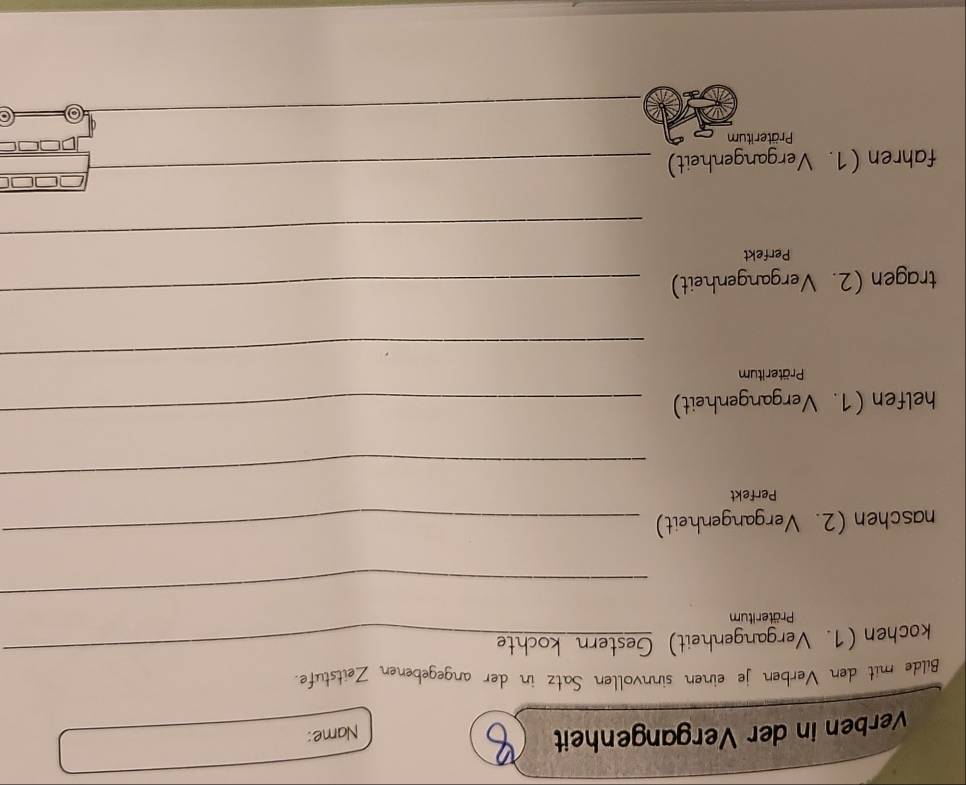 Verben in der Vergangenheit 8
Name:
Bilde mit den Verben je einen sinnvollen Satz in der angegebenen Zeitstufe.
kochen (1. Vergangenheit) Gestern kochte
Präteritum
naschen (2. Vergangenheit)
Perfekt
helfen (1. Vergangenheit)
Präteritum
tragen (2. Vergangenheit)
Perfekt
fahren (1. Vergangenheit)
Präteritum